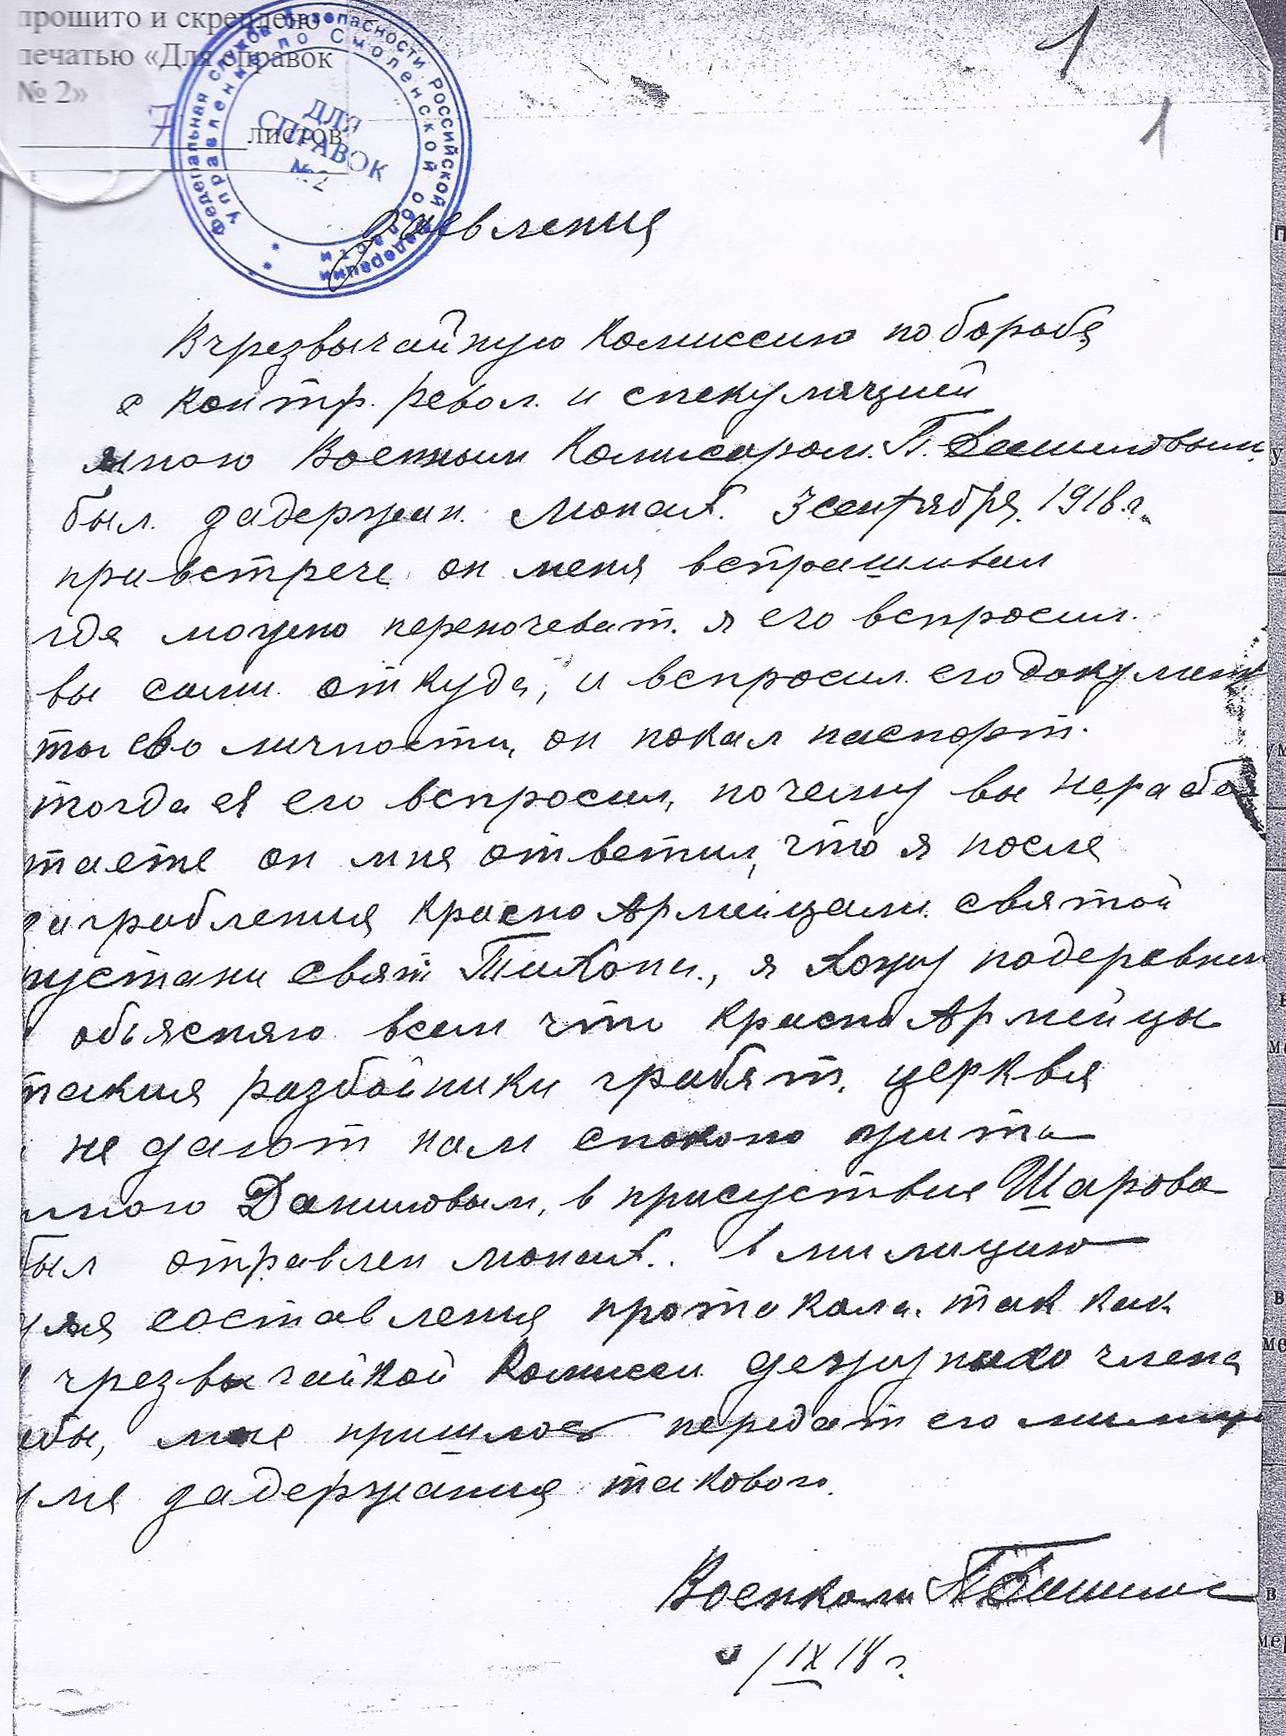 прошито и скреплено
печатью «Для справок
№ 2»
7 листов
Федеральная служба безопасности Российской Федерации
Управление по Смоленской области
ДЛЯ
СПРАВОК
№2
1
1
Заевления
В чрезвычайную Комиссию по борьбе
с контр. револ. и спекуляцией
мною Военным Комисаром. П. Даниловым
был. задержан. монах. 3 сентября. 1918 г.
при встрече он меня встрашивал
где можно переночеват. я его вспросил.
вы сами откуда, и вспросил его докумен
ты ево личности, он покал паспорт.
тогда я его вспросил, почему вы не рабо
таете он мне ответил, что я после
заграбления красно Армейцами. святой
пустани свят Тихона., я хожу подеревням
объясняю всем что красно Армейцы
такия разбойники грабят. церквя
не дают нам споконо жита
мною Даниловым, в присуствия Шарова
был отравлен монах.. в милицию
для составления протокала. так как
чрезвычайкой Комиссии дежурнаго члена
ебы, мне пришлос передат его милиц
для задержания такового.
Военком П Данилов
/IX 18 г.